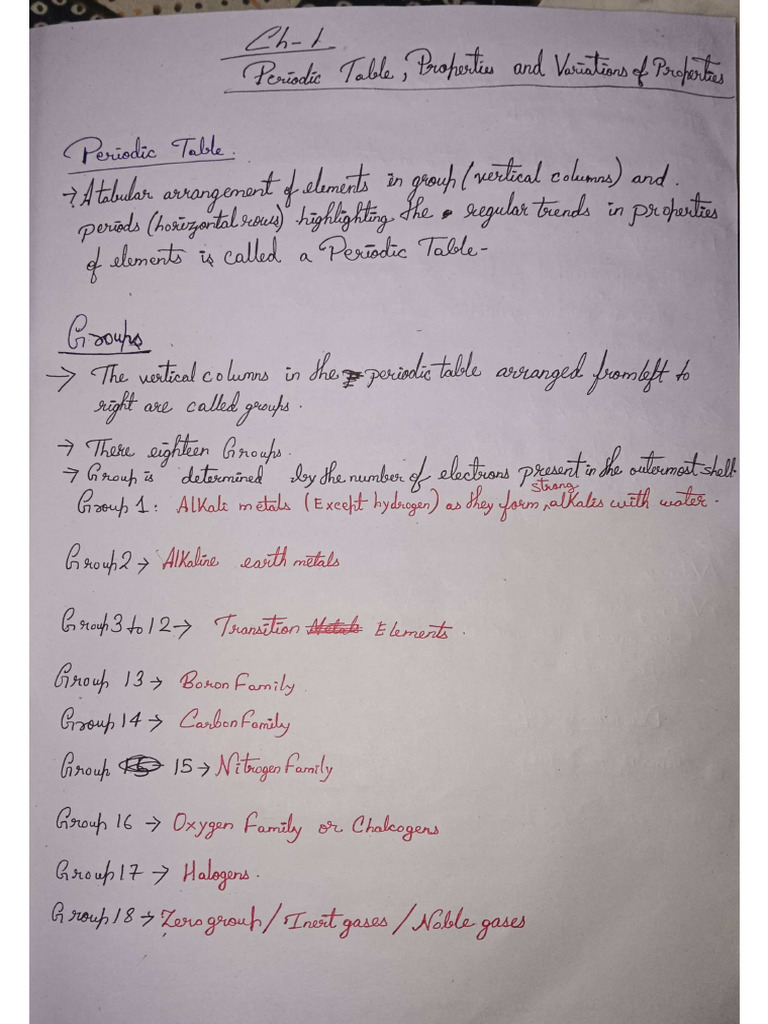 Ch-1
Periodic Table, Properties and Variations of Properties
Periodic Table.
→ A tabular arrangement of elements in group (vertical columns) and.
periods (horizontal rows) highlighting the regular trends in properties
of elements is called a Periodic Table-
Groups
→ The vertical columns in the periodic table arranged from left to
right are called groups.
→ There eighteen Groups.
→ Group is determined by the number of electrons present in the outermost shell.
strong
Group 1: Alkali metals (Except hydrogen) as they form, alkalies with water.
Group 2 → Alkaline earth metals
Group 3 to 12 → Transition Metals Elements.
Group 13 → Boron Family
Group 14 → Carbon Family
Group 15 → Nitrogen Family
Group 16 → Oxygen Family or Chalcogens
Group 17 → Halogens.
Group 18 → Zero group / Inert gases / Noble gases